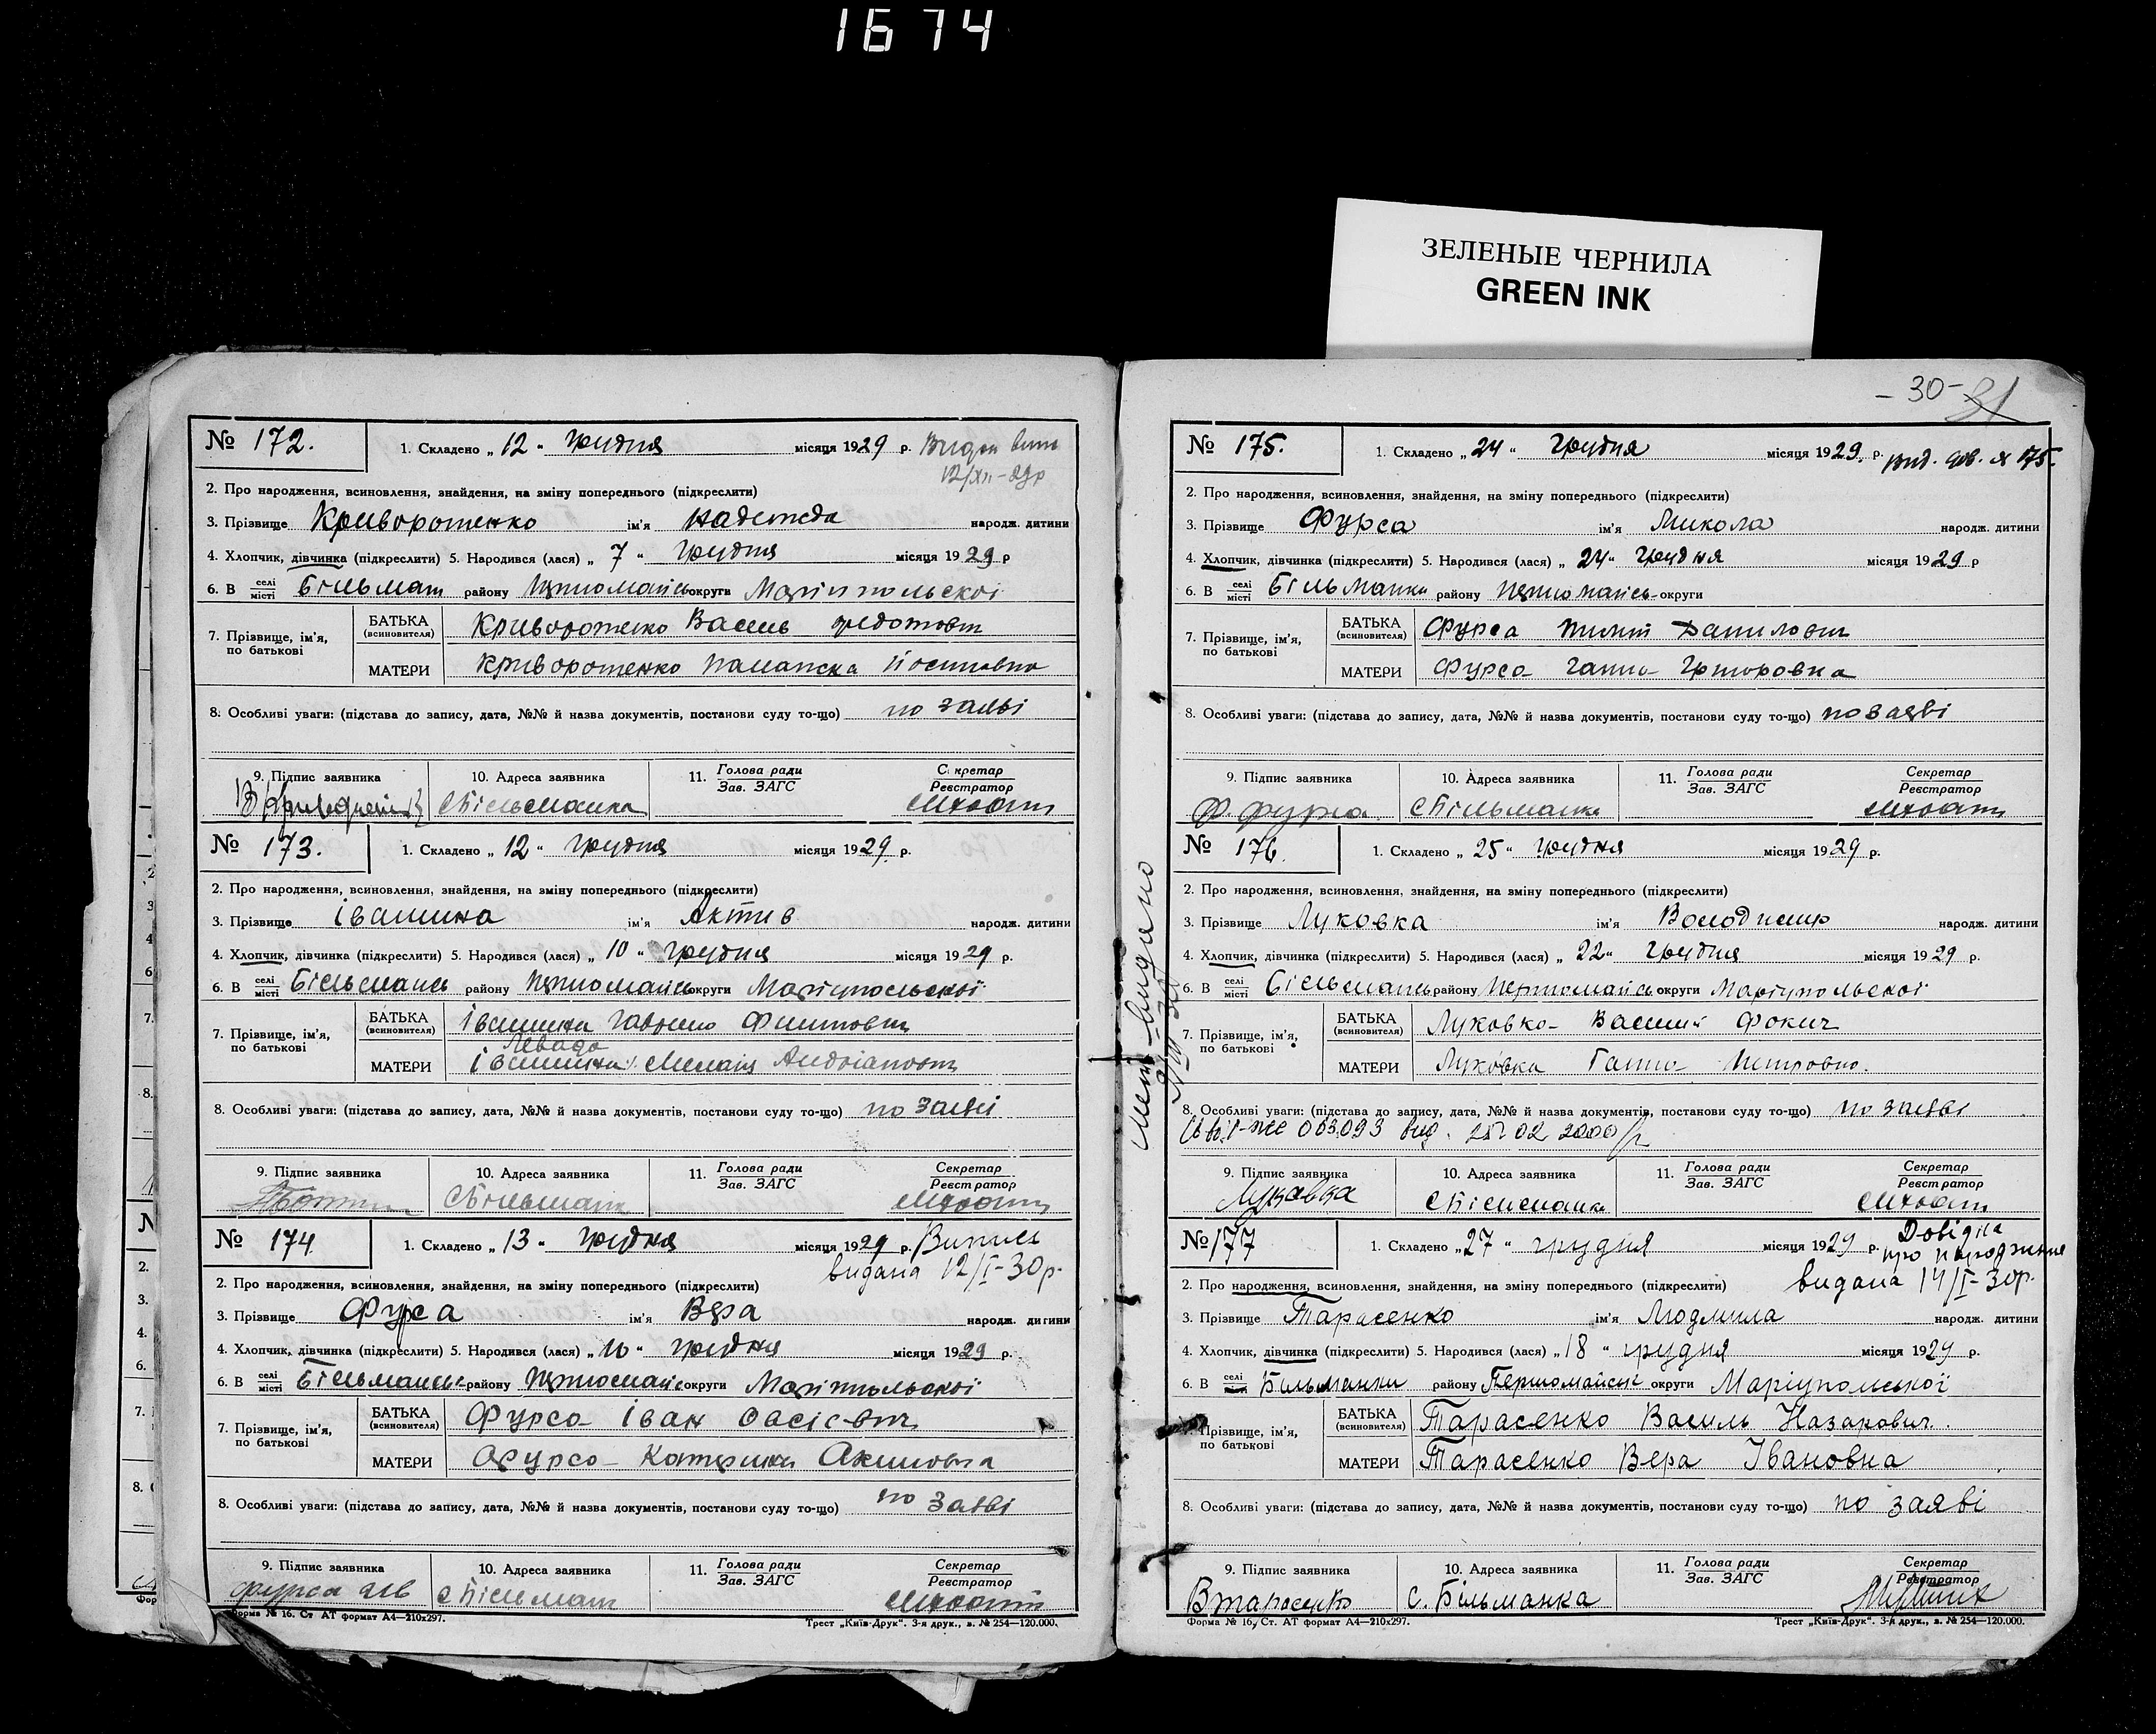 1674
ЗЕЛЕНЫЕ ЧЕРНИЛА
GREEN INK
№ 172. 1. Складено „ 12 “ грудня місяця 1929 р.
12/XII-29р
2. Про народження, всиновлення, знайдення, на зміну попереднього (підкреслити)
3. Прізвище Криворотенко ім'я Надежда народж. дитини
4. Хлопчик, дівчинка (підкреслити) 5. Народився (лася) „ 7 “ грудня місяця 1929 р
6. В селі місті Більман району округи Маріупольскої
7. Прізвище, ім'я, по батькові
БАТЬКА (всиновителя) Криворотенко Василь Федотович
МАТЕРИ Криворотенко
8. Особливі уваги: (підстава до запису, дата, №№ й назва документів, постанови суду то-що) по заяві
9. Підпис заявника 10. Адреса заявника 11. Голова ради Зав. ЗАГС Секретар Реєстратор
с Більманка
№ 173. 1. Складено „ 12 “ грудня місяця 1929 р.
2. Про народження, всиновлення, знайдення, на зміну попереднього (підкреслити)
3. Прізвище Івашина ім'я Актив народж. дитини
4. Хлопчик, дівчинка (підкреслити) 5. Народився (лася) „ 10 “ грудня місяця 1929 р.
6. В селі місті району округи Маріупольскої
7. Прізвище, ім'я, по батькові
БАТЬКА (всиновителя) Івашина
Левада
МАТЕРИ Івашина
8. Особливі уваги: (підстава до запису, дата, №№ й назва документів, постанови суду то-що) по заяві
9. Підпис заявника 10. Адреса заявника 11. Голова ради Зав. ЗАГС Секретар Реєстратор
№ 174 1. Складено „ 13 “ грудня місяця 1929 р. Випись
видана 12/I-30р.
2. Про народження, всиновлення, знайдення, на зміну попереднього (підкреслити)
3. Прізвище Фурса ім'я Вера народж. дитини
4. Хлопчик, дівчинка (підкреслити) 5. Народився (лася) „ 10 “ грудня місяця 1929 р.
6. В селі місті району округи Маріупольскої
7. Прізвище, ім'я, по батькові
БАТЬКА (всиновителя) Фурса Іван
МАТЕРИ Фурса Катерина
8. Особливі уваги: (підстава до запису, дата, №№ й назва документів, постанови суду то-що) по заяві
9. Підпис заявника 10. Адреса заявника 11. Голова ради Зав. ЗАГС Секретар Реєстратор
Фурса
Форма № 16. Ст. АТ формат А4—210x297. Трест „Київ-Друк“. 3-я друк., з. № 254—120.000.
- 30 - 31
№ 175. 1. Складено „ 24 “ грудня місяця 1929 р. вид. дов. № 175.
2. Про народження, всиновлення, знайдення, на зміну попереднього (підкреслити)
3. Прізвище Фурса ім'я Микола народж. дитини
4. Хлопчик, дівчинка (підкреслити) 5. Народився (лася) „ 24 “ грудня місяця 1929 р
6. В селі місті Більманки району округи
7. Прізвище, ім'я, по батькові
БАТЬКА (всиновителя) Фурса Данилович
МАТЕРИ Фурса Ганна
8. Особливі уваги: (підстава до запису, дата, №№ й назва документів, постанови суду то-що) по заяві
9. Підпис заявника 10. Адреса заявника 11. Голова ради Зав. ЗАГС Секретар Реєстратор
Ф. Фурса с Більманка
№ 176. 1. Складено „ 25 “ грудня місяця 1929 р.
2. Про народження, всиновлення, знайдення, на зміну попереднього (підкреслити)
3. Прізвище Луковка ім'я Володимир народж. дитини
4. Хлопчик, дівчинка (підкреслити) 5. Народився (лася) „ 22 “ грудня місяця 1929 р.
6. В селі місті району округи Маріупольскої
7. Прізвище, ім'я, по батькові
БАТЬКА (всиновителя) Луковка Василий Фокич
МАТЕРИ Луковка Ганна Петровна.
8. Особливі уваги: (підстава до запису, дата, №№ й назва документів, постанови суду то-що) по заяві
063093 вид. 02 2000
9. Підпис заявника 10. Адреса заявника 11. Голова ради Зав. ЗАГС Секретар Реєстратор
Луковка с Більманка
видано
№ 177 1. Складено „ 27 “ грудня місяця 1929 р. Довідка
про народження
видана 14/I-30р.
2. Про народження, всиновлення, знайдення, на зміну попереднього (підкреслити)
3. Прізвище Тарасенко ім'я Людмила народж. дитини
4. Хлопчик, дівчинка (підкреслити) 5. Народився (лася) „ 18 “ грудня місяця 1929 р.
6. В селі місті Більманки району Першомайськ округи Маріупольської
7. Прізвище, ім'я, по батькові
БАТЬКА (всиновителя) Тарасенко Василь Назарович.
МАТЕРИ Тарасенко Вера Івановна
8. Особливі уваги: (підстава до запису, дата, №№ й назва документів, постанови суду то-що) по заяві
9. Підпис заявника 10. Адреса заявника 11. Голова ради Зав. ЗАГС Секретар Реєстратор
В Тарасенко с. Більманка
Форма № 16, Ст. АТ формат А4—210x297. Трест „Київ-Друк“. 3-я друк., з. № 254—120.000.